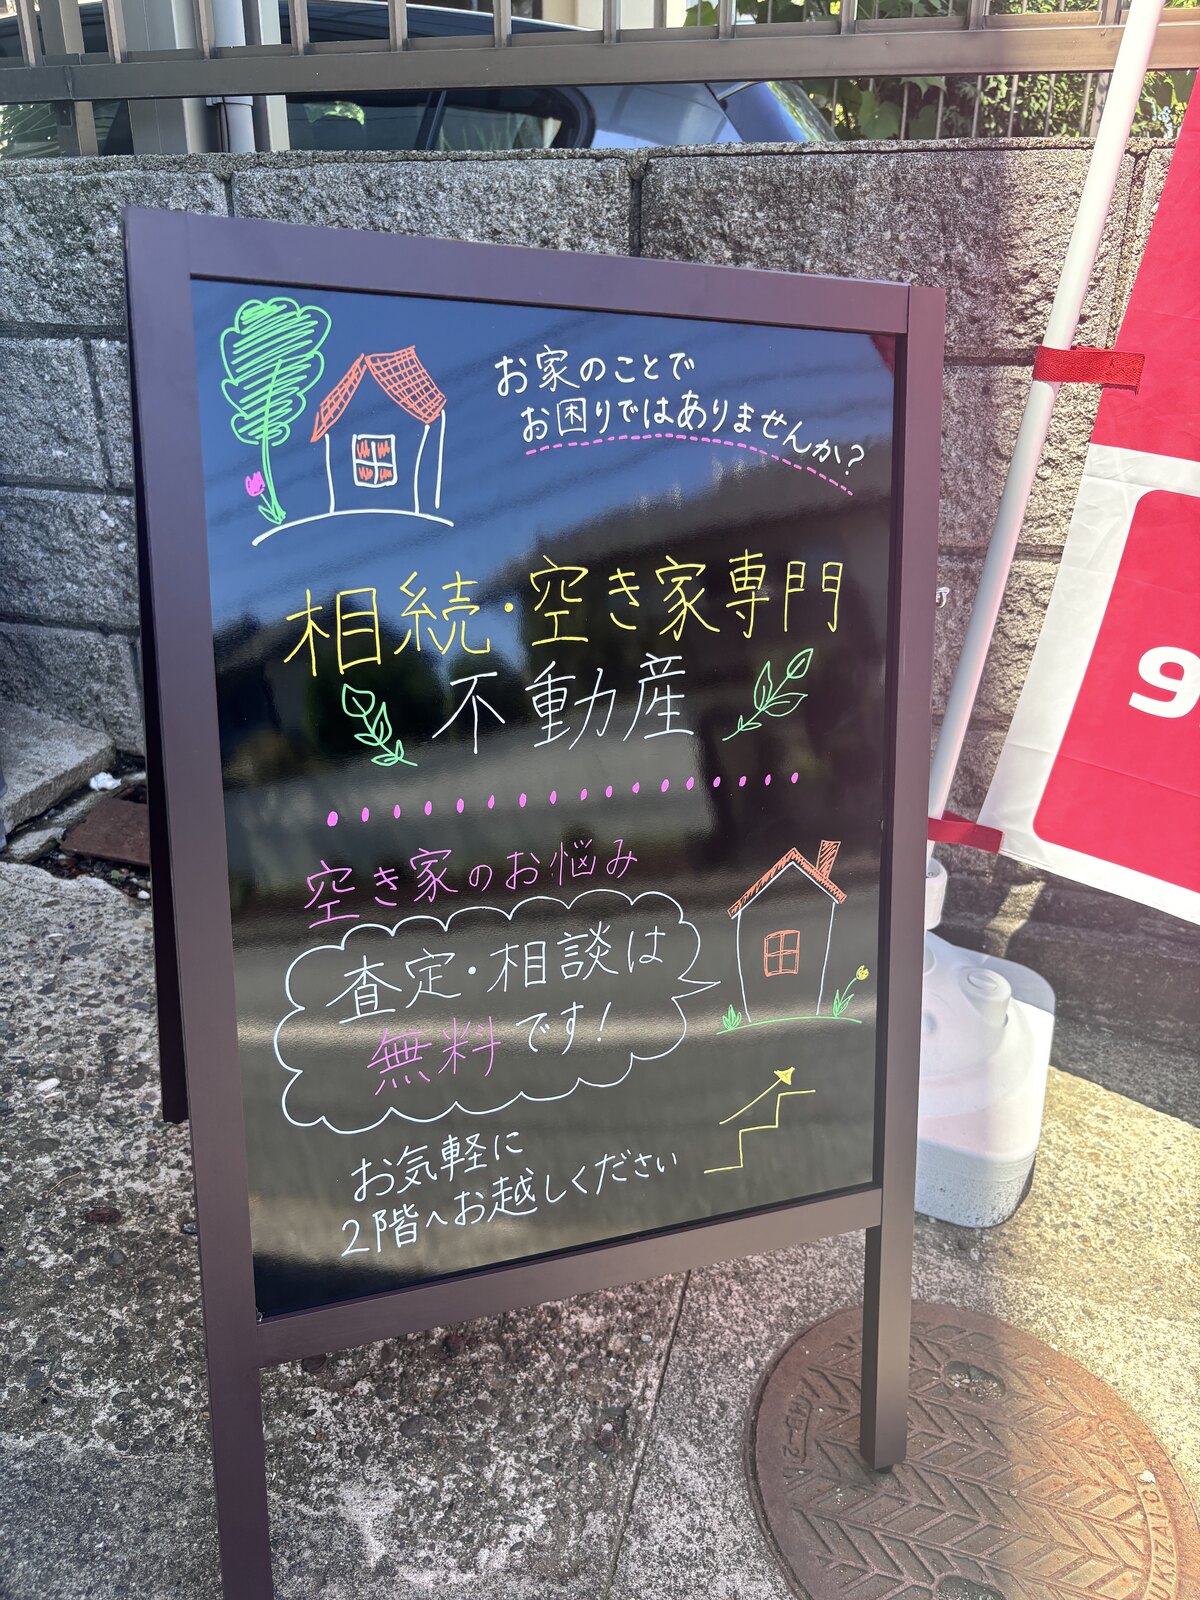 お家のことで
お困りではありませんか?
相続・空き家専門
不動産
空き家のお悩み
査定・相談は
無料です!
お気軽に
2階へお越しください
9